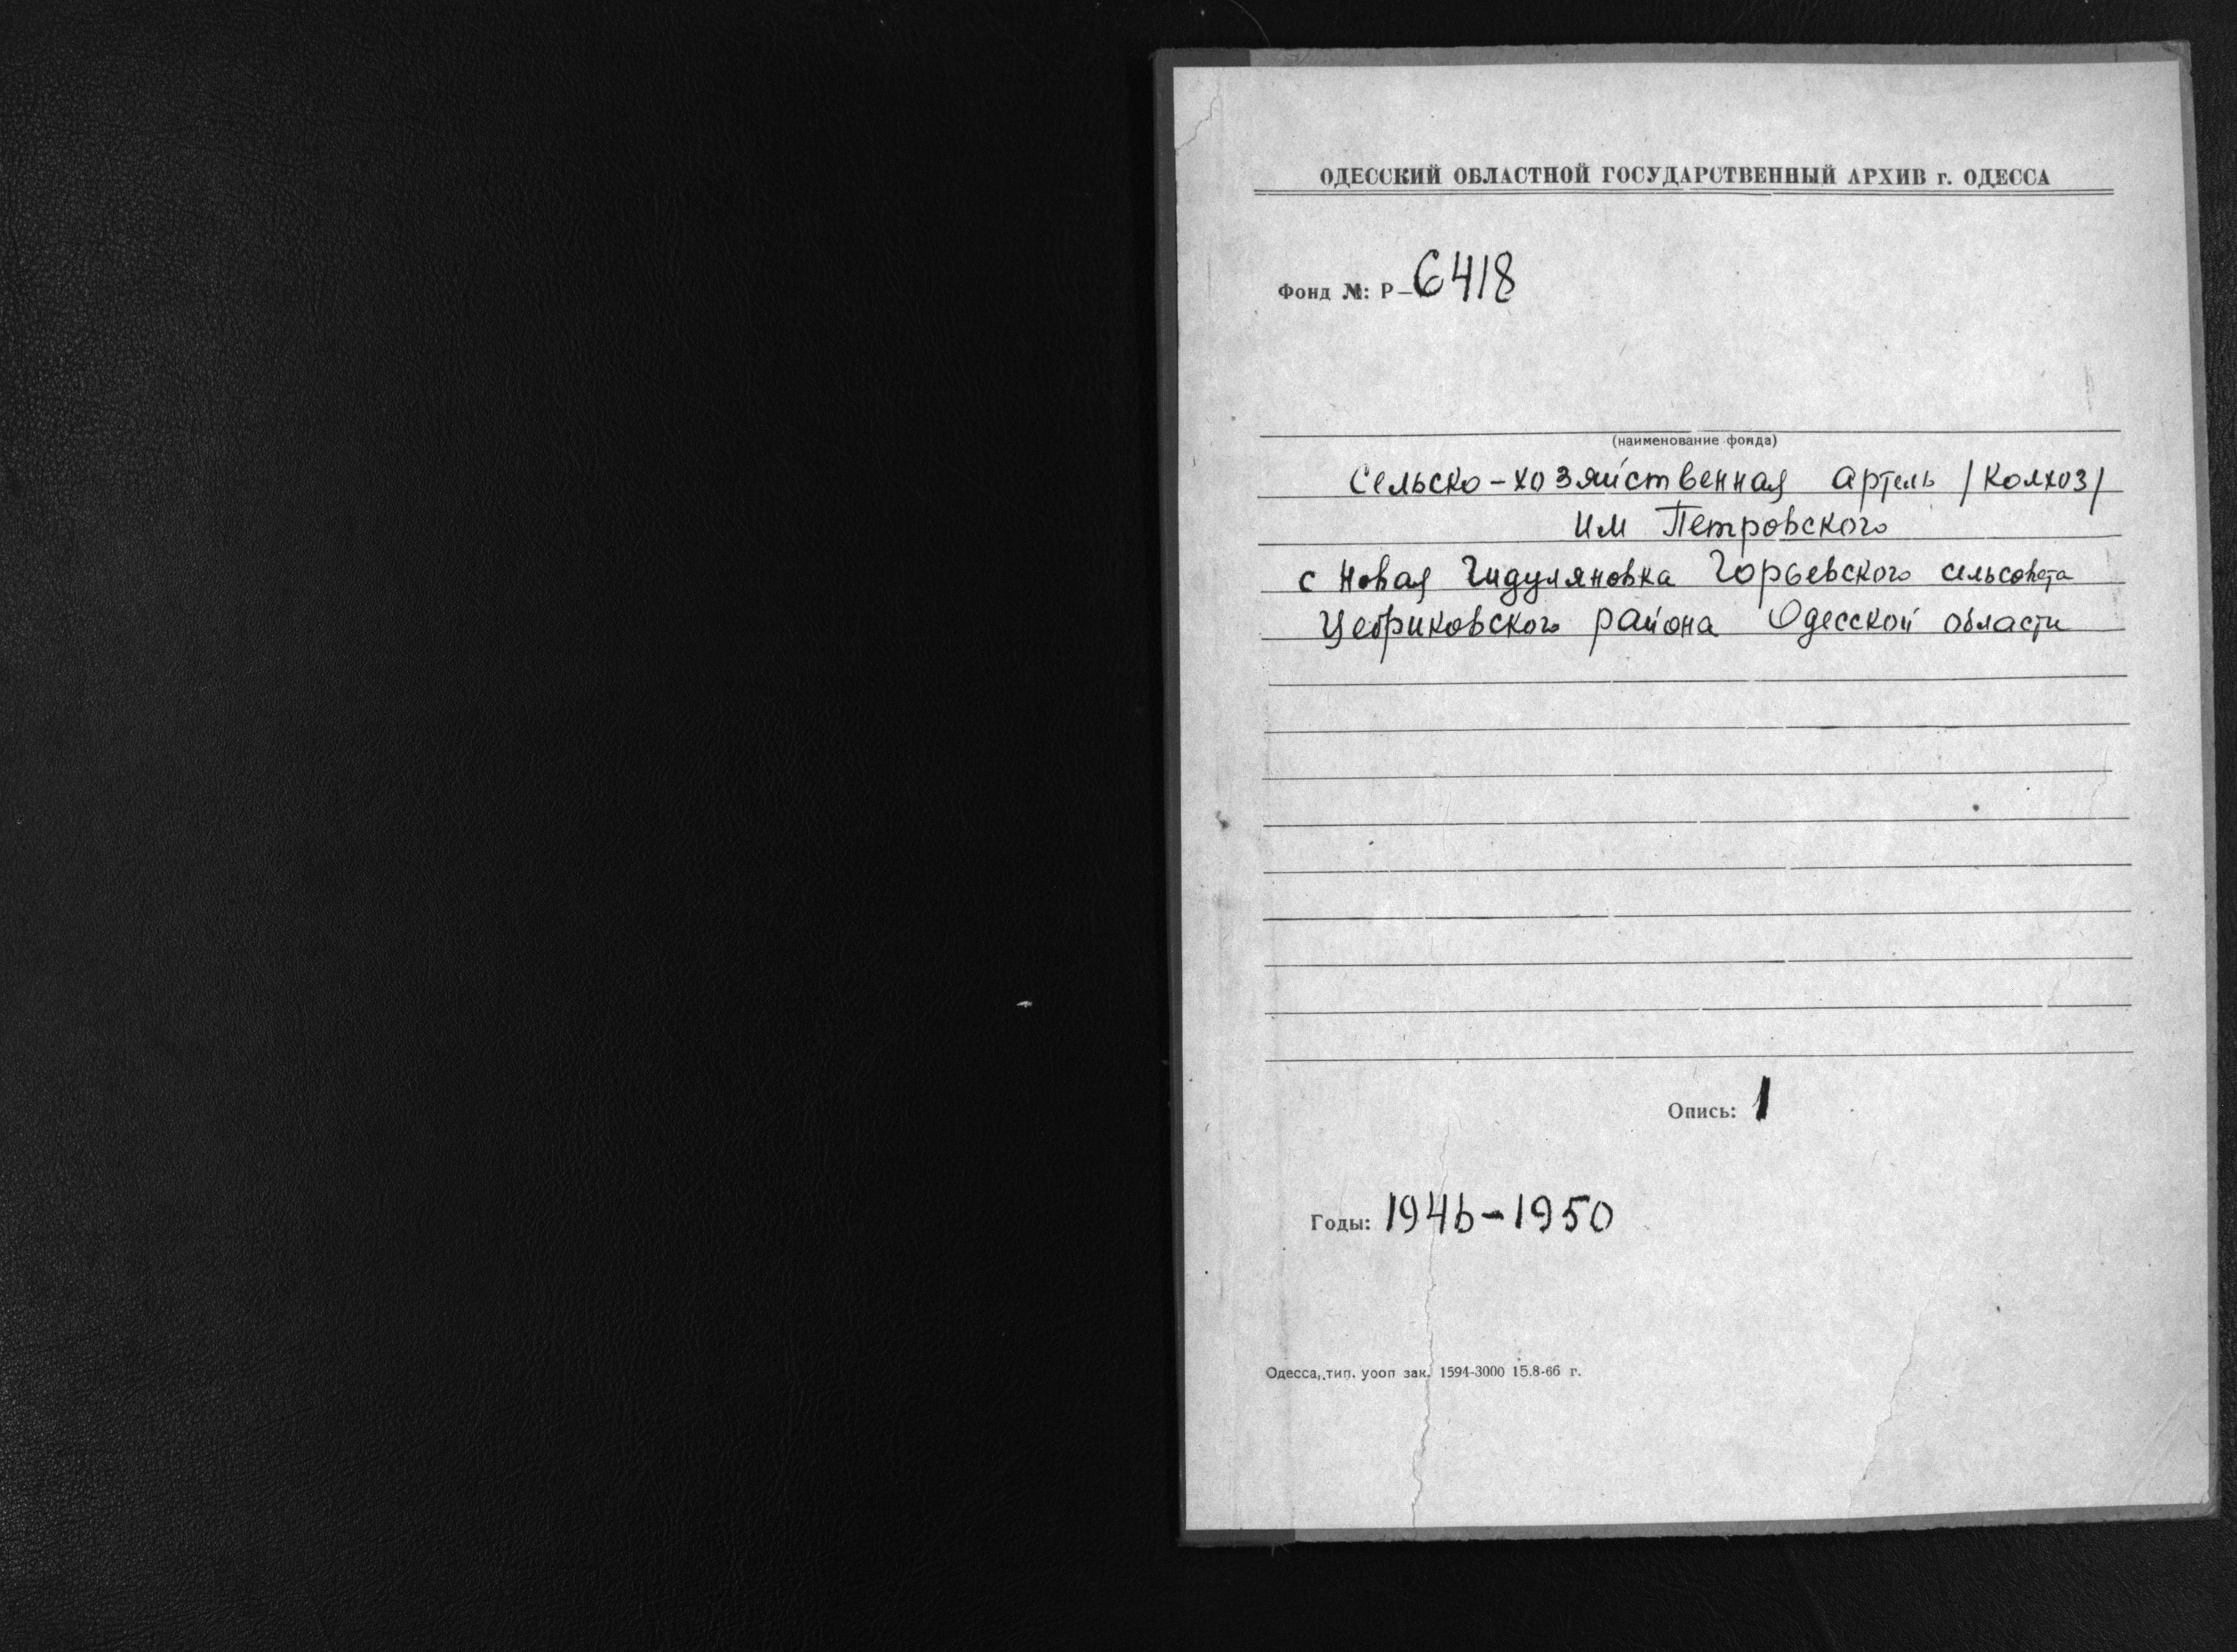 ОДЕССКИЙ ОБЛАСТНОЙ ГОСУДАРСТВЕННЫЙ АРХИВ г. ОДЕССА
Фонд №: Р-6418
(наименование фонда)
Сельско-хозяйственная артель /колхоз/
им Петровского
с Новая Гидуляновка Горьевского сельсовета
Цебриковского района Одесской области
Опись: 1
Годы: 1946-1950
Одесса, тип. уооп зак. 1594-3000 15.8-66 г.